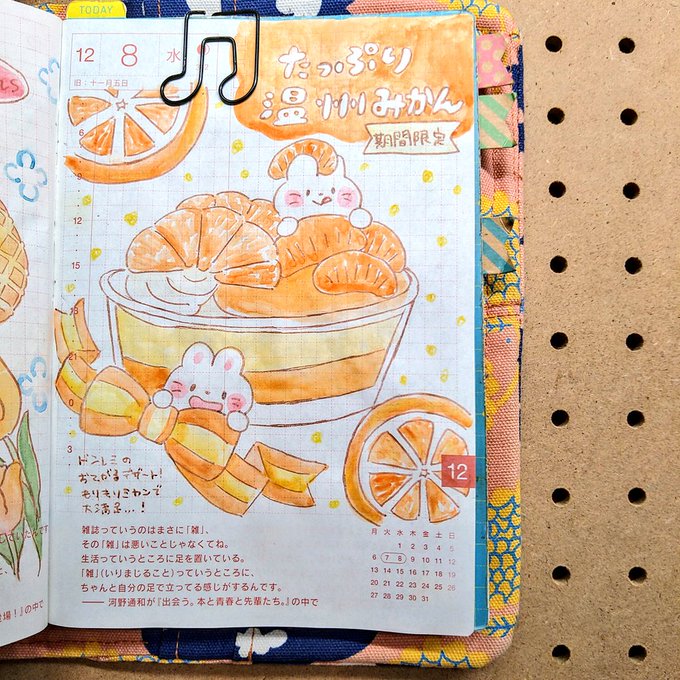 TODAY
12 8 水
旧：十一月五日
たっぷり
温州みかん
期間限定
6
9
12
15
18
21
0
3
ドンレミの
おてがるデザート!
もりもりミカンで
大満足…!
12
雑誌っていうのはまさに「雑」、
その「雑」は悪いことじゃなくてね。
生活っていうところに足を置いている。
「雑」(いりまじること)っていうところに、
ちゃんと自分の足で立ってる感じがするんです。
—— 河野通和が『出会う。本と青春と先輩たち。』の中で
月 火 水 木 金 土 日
1 2 3 4 5
6 7 8 9 10 11 12
13 14 15 16 17 18 19
20 21 22 23 24 25 26
27 28 29 30 31
』の中で